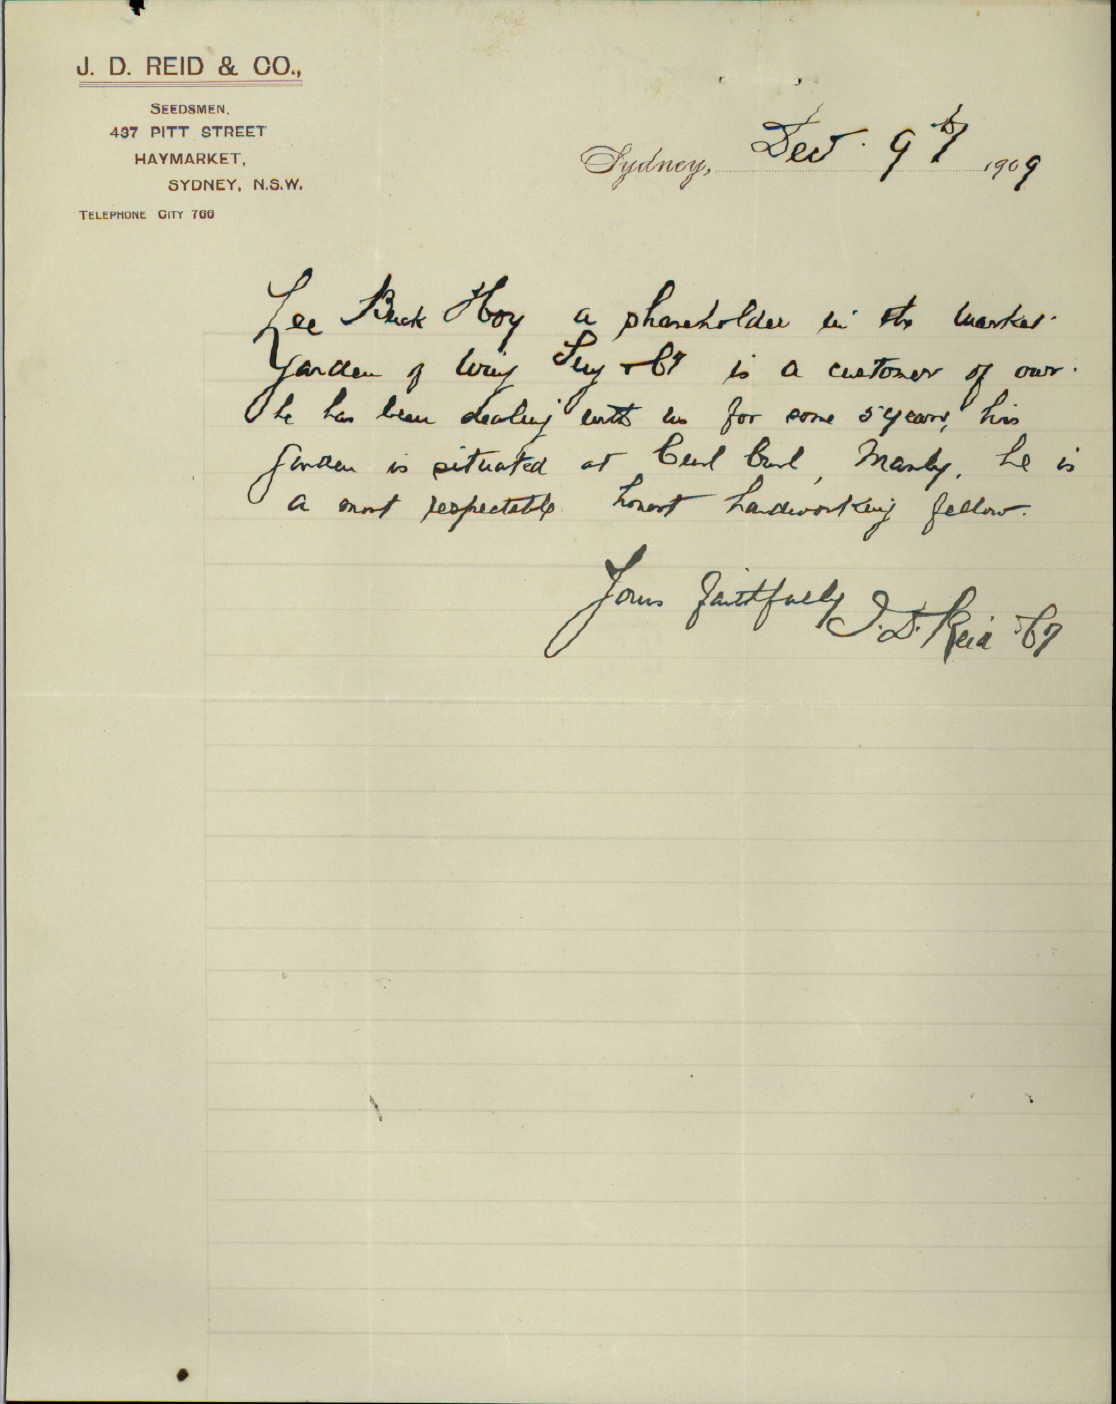 J. D. REID & CO.,
SEEDSMEN.
437 PITT STREET
HAYMARKET,
SYDNEY, N.S.W.
TELEPHONE CITY 766
Sydney, Dec. 9th 1909
Lee Buck Hoy a shareholder in the market
garden of Wing & Co is a customer of our
he has been dealing with us for some 5 years, his
garden is situated at Curl Curl, Manly, he is
a most respectable honest hardworking fellow.
Yours faithfully
J. D. Reid & Co